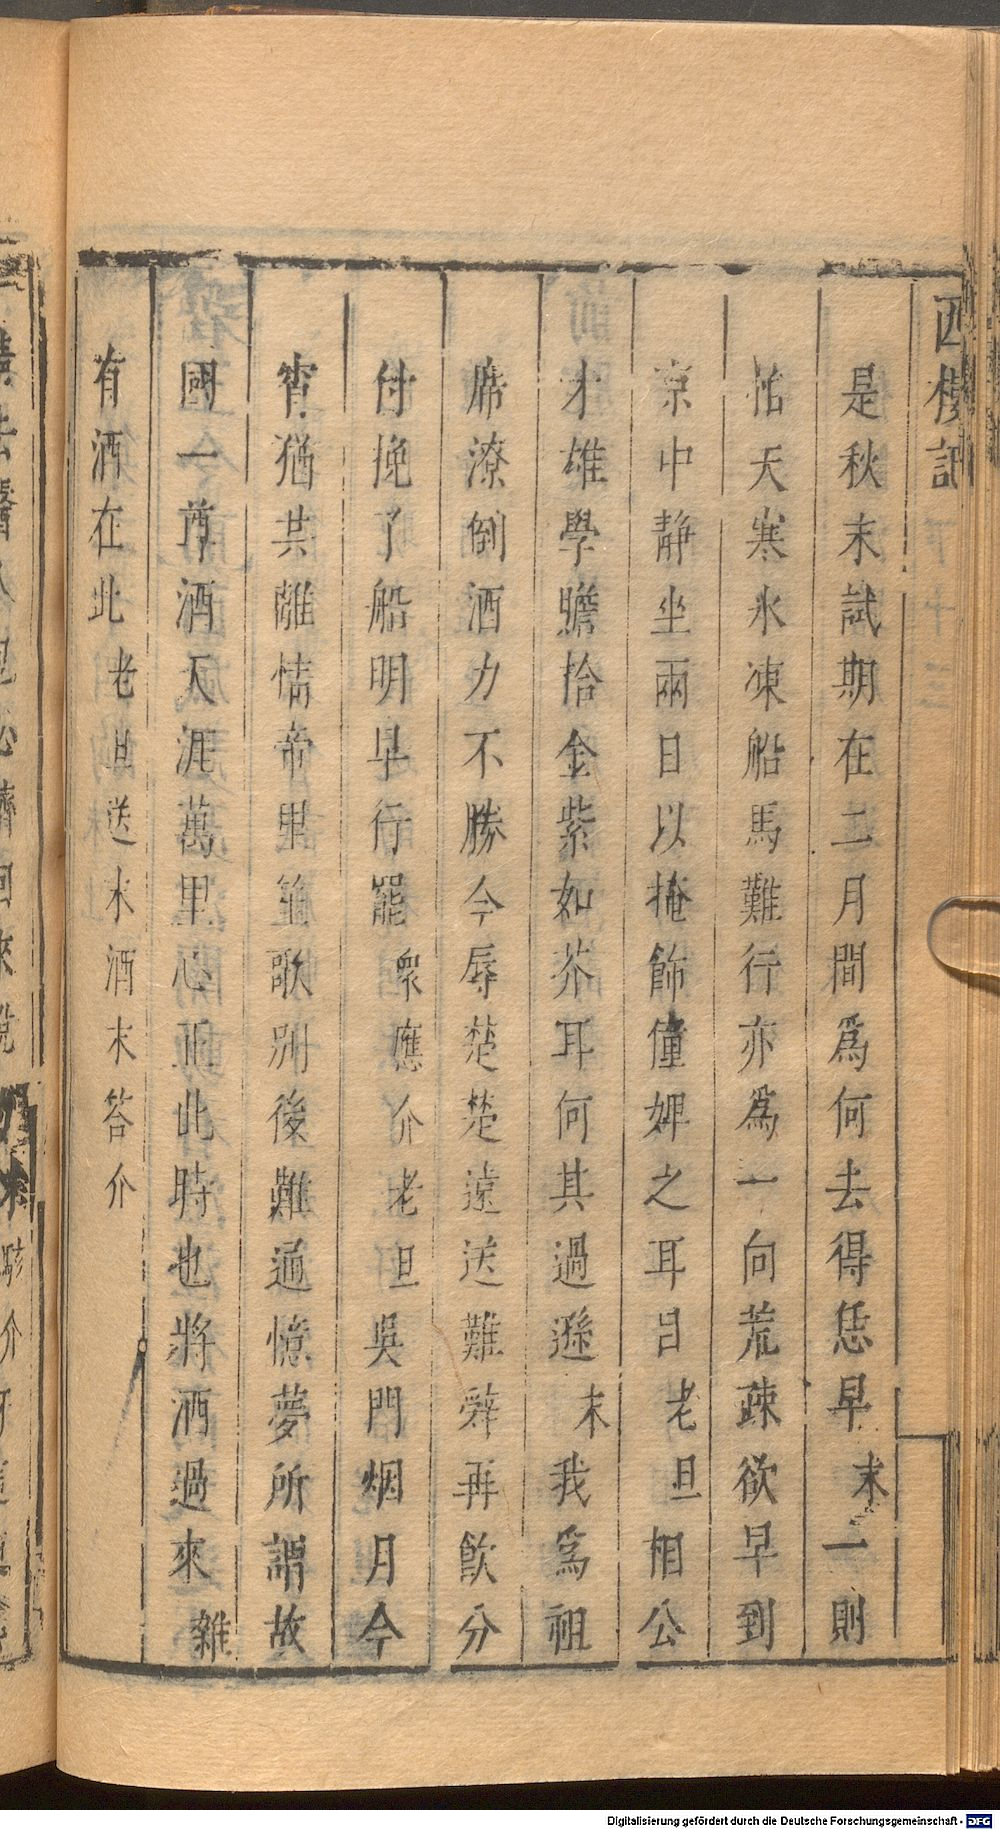 西樓記
是秋末試期在二月間爲何去得恁早末一則
怕天寒水凍船馬難行亦爲一向荒疎欲早到
京中靜坐兩日以掩飾僮婢之耳目老旦相公
才雄學贍拾金紫如芥耳何其過遜末我爲祖
席潦倒酒力不勝今辱楚楚遠送難辭再飲分
付挽了船明早行罷衆應介老旦吳門烟月今
宵猶共離情帝里笙歌別後難通憶夢所謂故
國一尊酒天涯萬里心正此時也將酒過來雜
有酒在此老旦送末酒末答介
Digitalisierung gefördert durch die Deutsche Forschungsgemeinschaft - DFG